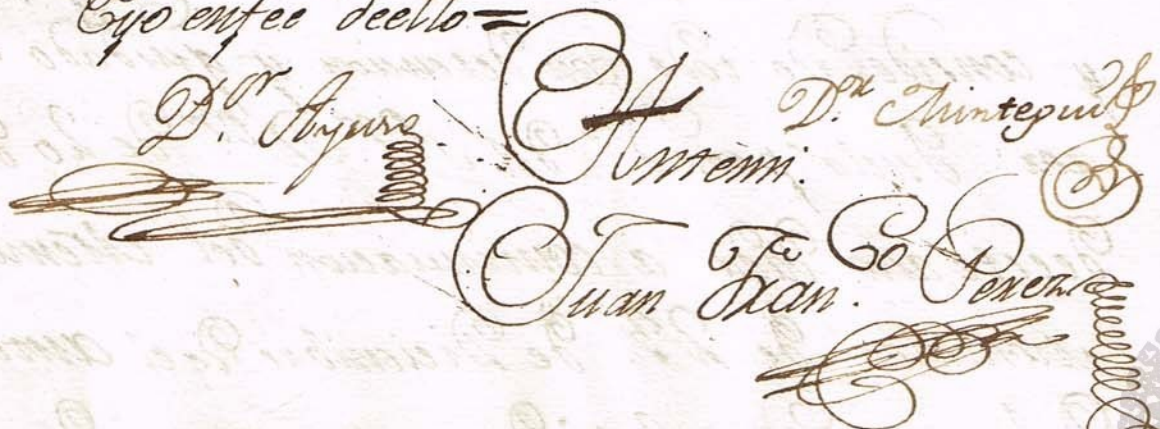 Eyo enfee deello=
D.or Ayuso
Antemi.
D.n Mintegui
Juan Fran.co Perez